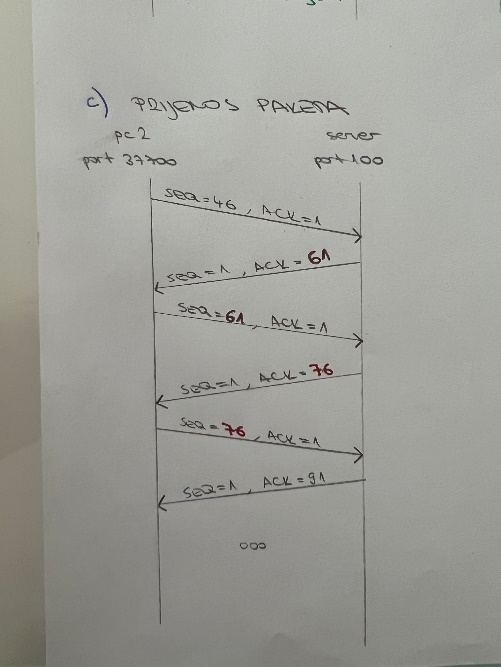 c) PRIJENOS PAKETA
pc2 server
port 37700 port 100
SEQ=46, ACK=1
SEQ=1, ACK=61
SEQ=61, ACK=1
SEQ=1, ACK=76
SEQ=76, ACK=1
SEQ=1, ACK=91
ooo